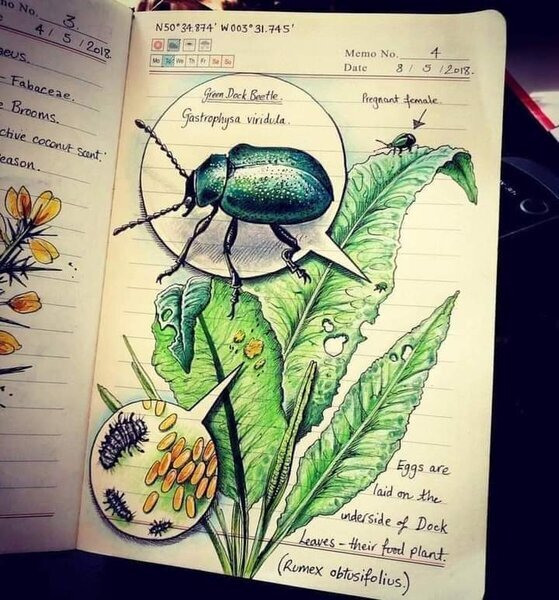 mo No. 3
4/5/2018.
eus.
- Fabaceae.
e Brooms.
ctive coconut scent.
eason.
N50°34.874' W003°31.745'
Mo Tu We Th Fr Sa Su
Memo No. 4
Date 8/5/2018.
Green Dock Beetle.
Gastrophysa viridula.
Pregnant female.
Eggs are
laid on the
underside of Dock
Leaves - their food plant.
(Rumex obtusifolius.)